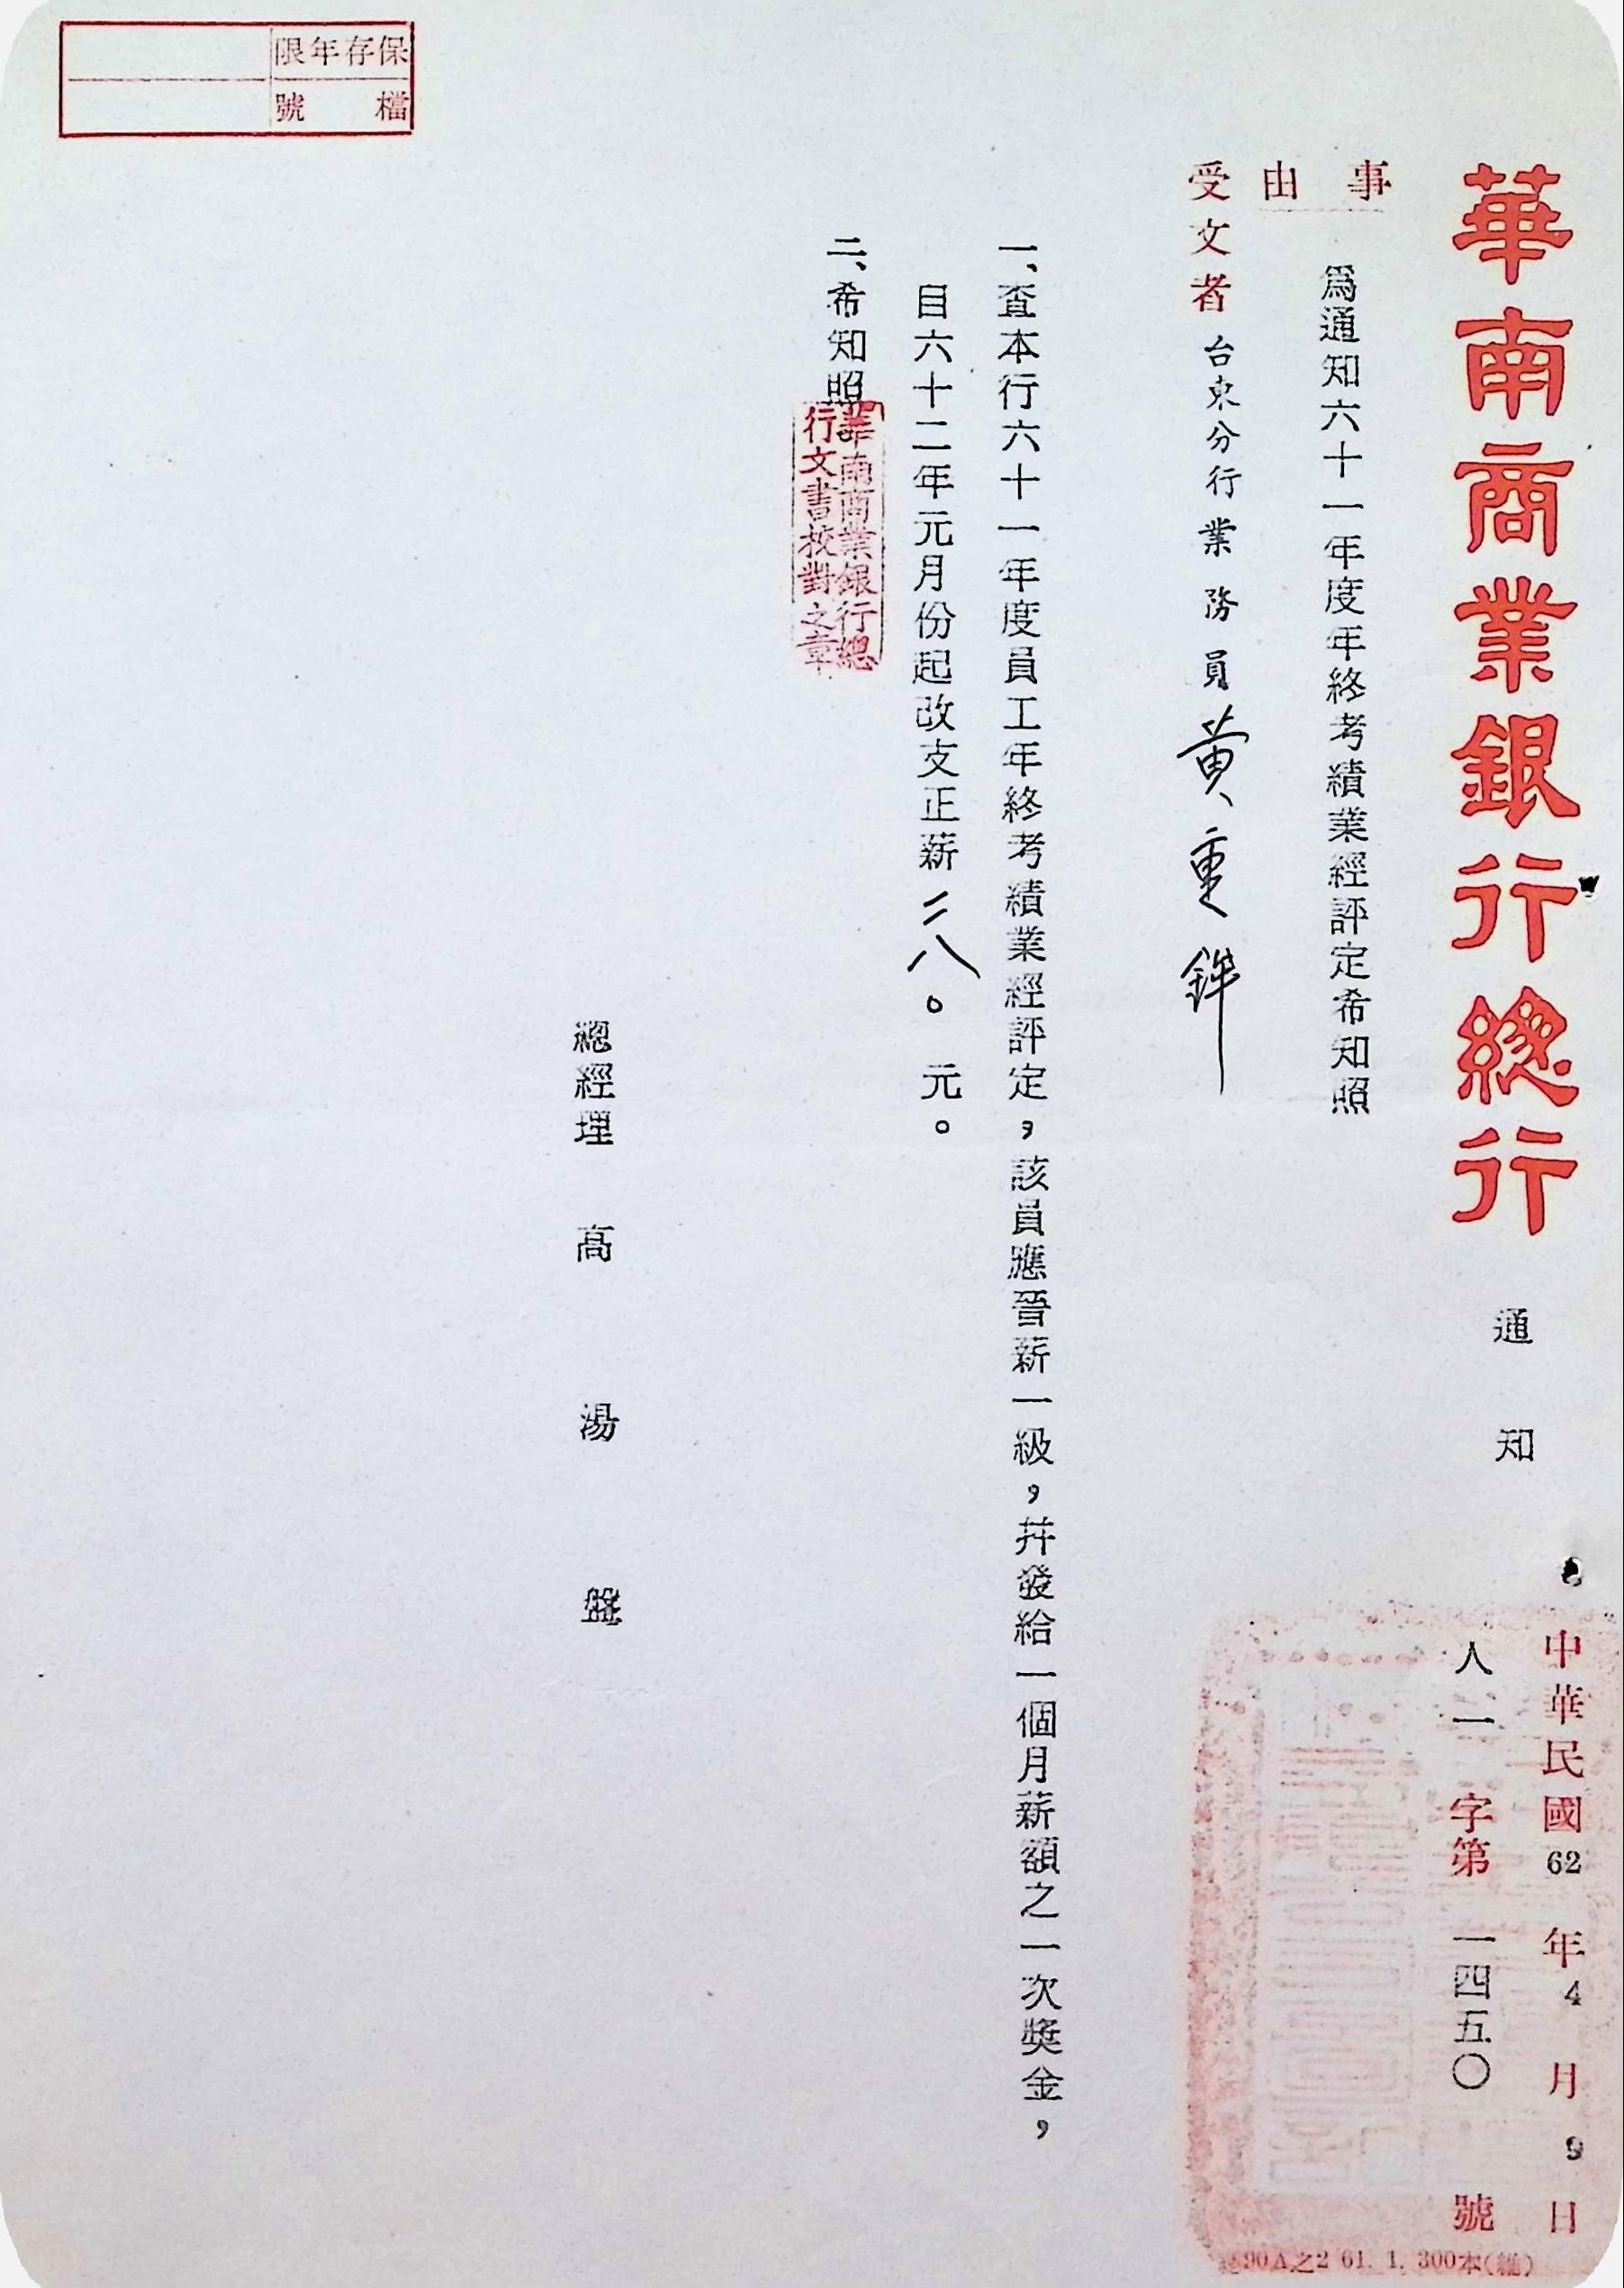 華南商業銀行總行 通知
中華民國62年4月9日
人二字第一四五〇號
事由
為通知六十一年度年終考績業經評定希知照
受文者 台東分行業務員 黃重鉾
一、查本行六十一年度員工年終考績業經評定，該員應晉薪一級，幷發給一個月薪額之一次獎金，
自六十二年元月份起改支正薪二八〇元。
二、希知照
華南商業銀行總
行文書校對之章
總經理 高湯盤
保存年限
檔號
90A之2 61. 1. 300本(維)